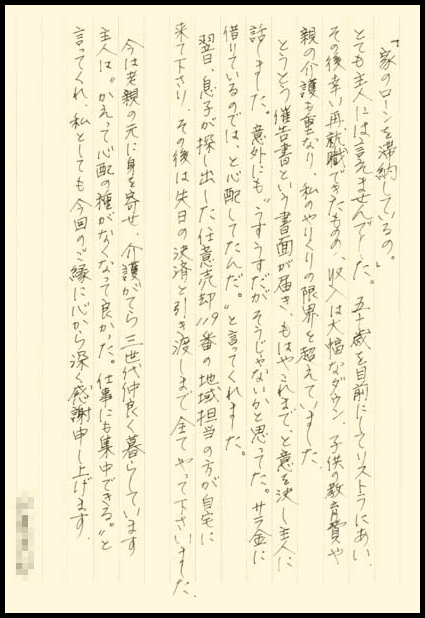 「家のローンを滞納しているの。」
とても主人には言えませんでした。五十歳を目前にしてリストラにあい、
その後幸い再就職できたものの、収入は大幅なダウン、子供の教育費や
親の介護も重なり、私のやりくりの限界を超えていました。
とうとう催告書という書面が届き、もはやこれまで、と意を決し主人に
話しました。意外にも“うすうすだがそうじゃないかと思ってた。サラ金に
借りているのでは、と心配してたんだ。”と言ってくれました。
翌日、息子が探し出した任意売却119番の地域担当の方が自宅に
来て下さり、その後は先日の決済と引き渡しまで全てやって下さいました。
今は老親の元に身を寄せ、介護がてら三世代仲良く暮らしています
主人は“かえって心配の種がなくなって良かった。仕事にも集中できる。”と
言ってくれ、私としても今回のご縁に心から深く感謝申し上げます。